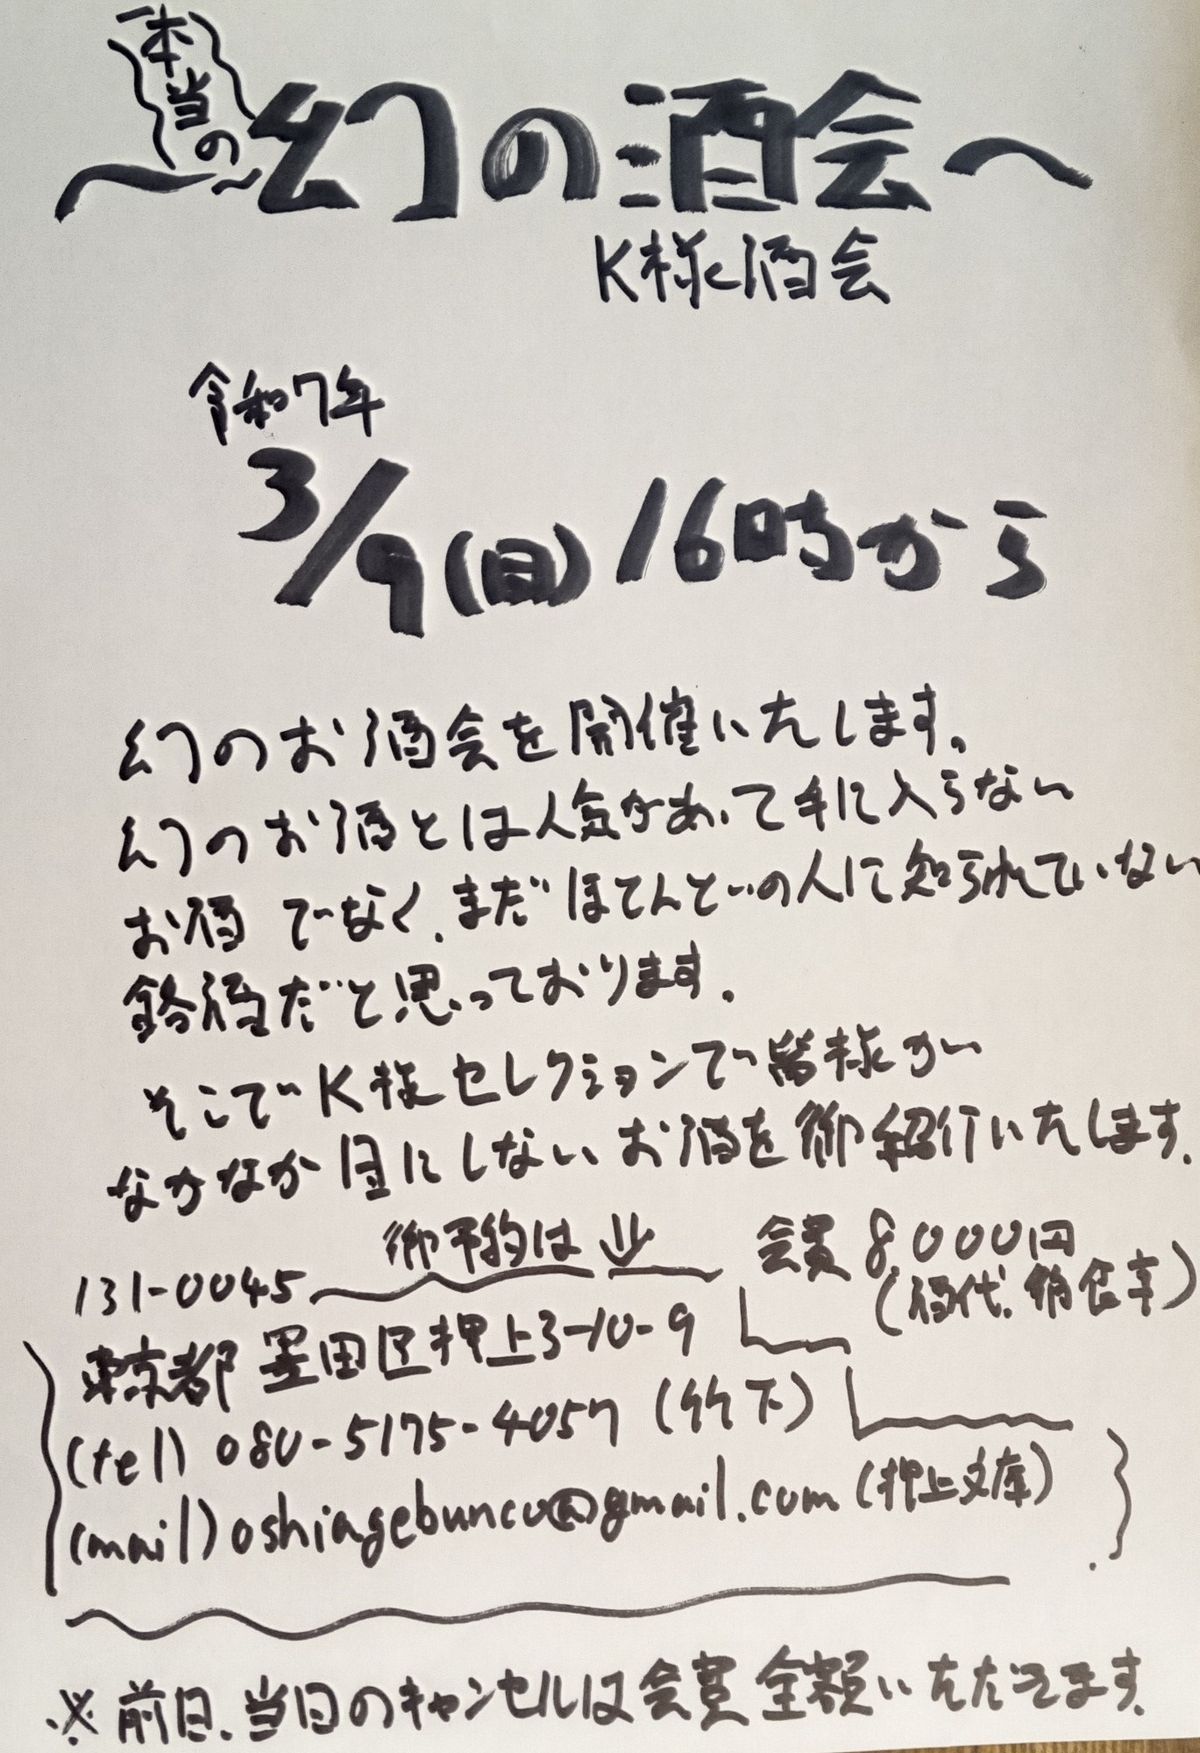 本当の
～幻の酒会～
K様酒会
令和7年
3/9(日)16時から
幻のお酒会を開催いたします。
幻のお酒とは人気があって手に入らない
お酒でなく、まだほとんどの人に知られていない
銘酒だと思っております。
そこでK様セレクションで皆様が
なかなか目にしないお酒を御紹介いたします。
御予約は⇓
会費8,000円
(酒代、軽食事)
131-0045
東京都墨田区押上3-10-9
(tel)080-5175-4057(竹下)
(mail)oshiagebunco@gmail.com(押上文庫)
※前日、当日のキャンセルは会費全額いただきます。